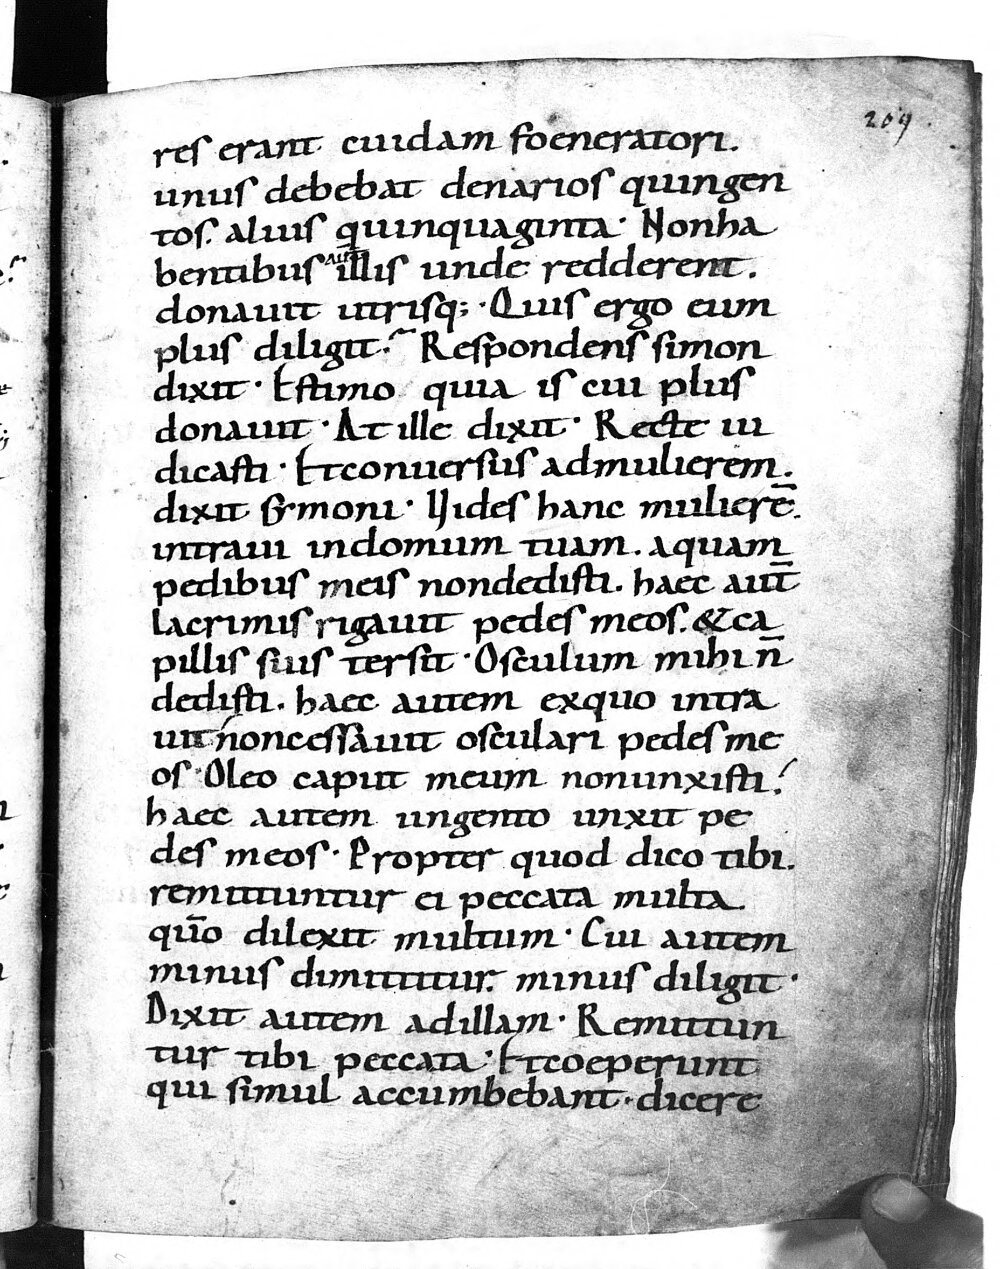 209.
res erant cuidam foeneratori.
unus debebat denarios quingen
tos. alius quinquaginta· Nonha
bentibus aut̄ illis unde redderent.
donauit utrisq;· Quis ergo eum
plus diligit? Respondens simon
dixit· Estimo quia is cui plus
donauit· At ille dixit· Recte iu
dicasti· Etconuersus admulierem.
dixit symoni· Uides hanc mulierē.
intraui indomum tuam. aquam
pedibus meis nondedisti. haec aut̄
lacrimis rigauit pedes meos. & ca
pillis suis tersit· Osculum mihi n̄
dedisti. haec autem exquo intra
uit noncessauit osculari pedes me
os· Oleo caput meum nonunxisti;
haec autem ungento unxit pe
des meos· Propter quod dico tibi.
remittuntur ei peccata multa.
qūo dilexit multum· Cui autem
minus dimittitur. minus diligit·
Dixit autem adillam· Remittun
tur tibi peccata· Etcoeperunt
qui simul accumbebant· dicere